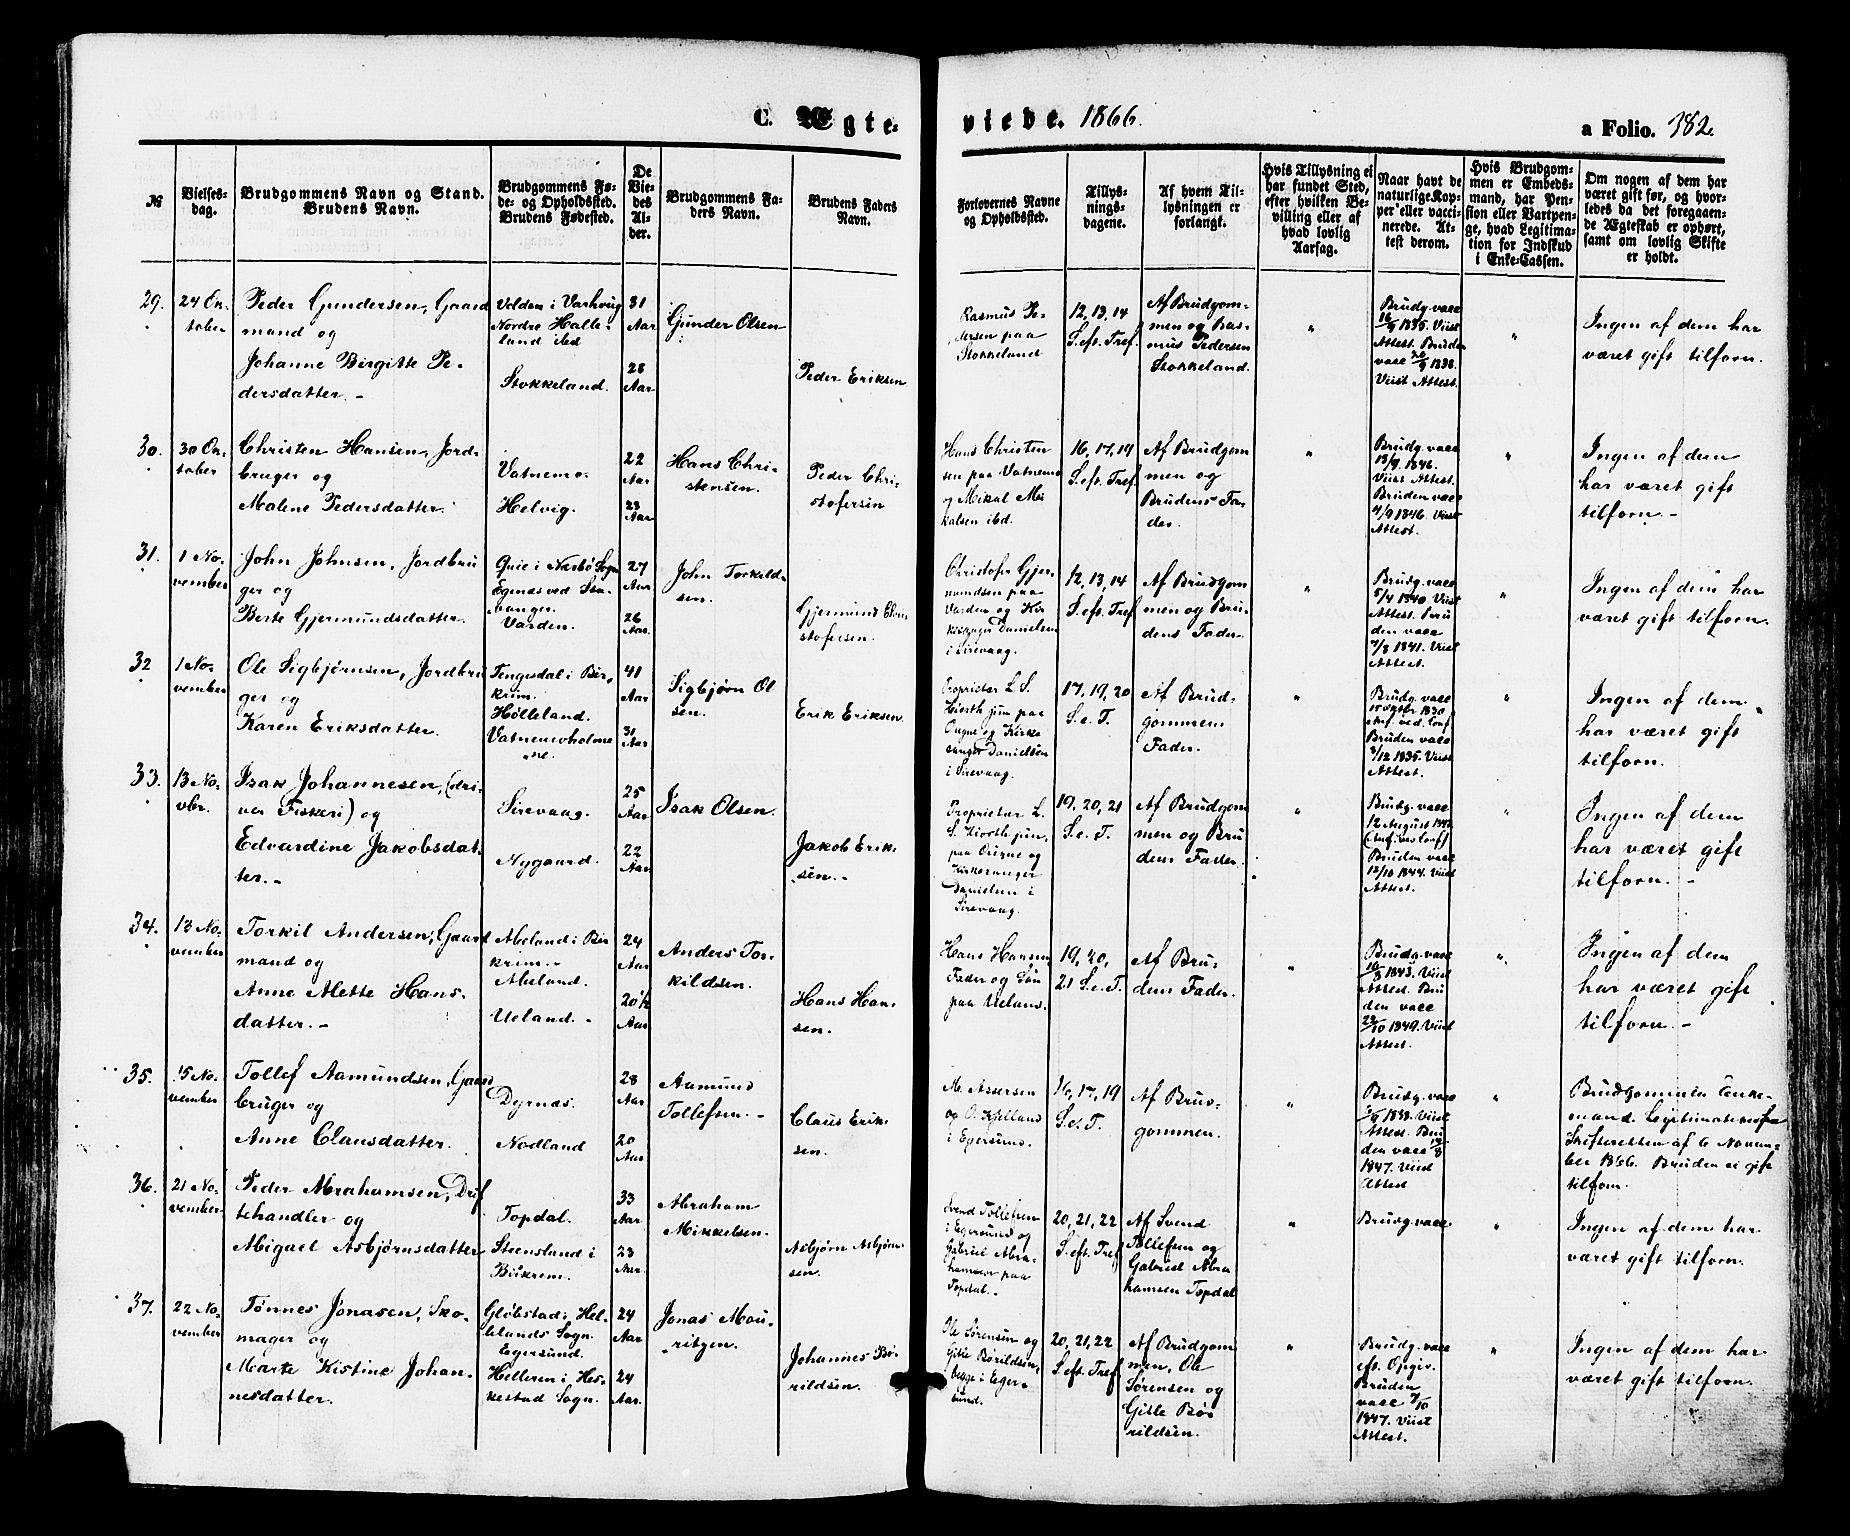 C. Ægte-
viede. 1866.
a Folio. 382.
№
Vielses-
dag.
Brudgommens Navn og Stand.
Brudens Navn.
Brudgommens Fø-
de- og Opholdssted.
Brudens Fødested.
De
Vie-
des
Al-
der.
Brudgommens Fa-
ders Navn.
Brudens Faders
Navn.
Forlovernes Navne
og Opholdssted.
Tillys-
nings-
dagene.
Af hvem Til-
lysningen er
forlangt.
Hvis Tillysning ei
har fundet Sted,
efter hvilken Be-
villing eller af
hvad lovlig
Aarsag.
Naar havt de
naturlige Kop-
per eller vacci-
nerede. At-
test derom.
Hvis Brudgom-
men er Embeds-
mand, har Pen-
sion eller Vartpen-
ge, hvad Legitima-
tion for Indskud
i Enke-Cassen.
Om nogen af dem har
været gift før, og hvor-
ledes da det foregaaen-
de Ægteskab er ophørt,
samt om lovlig Skifte
er holdt.
29.
24 Ok-
tober
Peder Gundersen, Gaard
mand og
Johanne Birgitte Pe-
dersdatter.
Velden i Varhoug
Nordre Halle-
land ibd
Stokkeland.
31
Aar
28
Aar
Gunder Olsen
Peder Eriksen
Rasmus Pe-
dersen paa
Stokkeland
12, 13, 14
S. eft. Tref.
Af Brudgom-
men og Ras-
mus Pedersen
Stokkeland.
"
Brudg. vacc
16/9 1835. Viist
Attest. Bruden
vacc 20/9 1838.
Viist Attest.
"
Ingen af dem har
været gift tilforn.
30.
30 Ok-
tober
Christen Hansen, Jord-
bruger og
Malene Pedersdatter.
Vatnemo.
Helvig.
22
Aar
23
Aar
Hans Chri-
stensen.
Peder Chri-
stofersen
Hans Christen
sen paa Vatnemo
og Mikal Mi-
kalsen ibd.
16, 17, 19
S. eft. Tref.
Af Brudgom
men og
Brudens Fa-
der.
"
Brudg. vacc
13/9 1846.
Viist Attest.
Bruden vacc
4/9 1846. Viist
Attest.
"
Ingen af dem
har været gift
tilforn.-
31.
1 No-
vember
John Johnsen, Jordbru
ger og
Berte Gjermundsdatter.
Qvie i Nærbø Sogn
Egenæs ved Sta-
vanger.
Varden.
27
Aar
26
Aar.
John Torkild-
sen.
Gjermund Chri-
stofersen.
Christofer Gjer-
mundsen paa
Varden og Kir
kesanger Danielsen
i Sirevaag.
12, 13, 14
S. eft. Tref
Af Brudgom
men og Bru-
dens Fader.
"
Brudg. vacc
5/4 1840 Viist
Attest. Bru
den vacc
7/8 1841. Viist
Attest.
"
Ingen af dem har
været gift tilforn.
32
1 No-
vember
Ole Sigbjørnsen, Jordbru
ger og
Karen Eriksdatter.
Tengesdal i Bir-
krim.
Hølleland.
Vatnemoholme
ne.
41
Aar
31
Aar
Sigbjørn Ol
sen.
Erik Eriksen.
Proprietær L. S.
Hiorth jun paa
Ougne og Kirke
sanger Danielsen
i Sirevaag.
17, 19, 20
S. e. T.
Af Brud-
gommens
Fader.
"
Brudg. vacc
Anf. ved Conf
Bruden vacc
3/12 1835. Viist
Attest.
"
Ingen af dem
har været gift
tilforn.
33.
13 No-
vbr.
Isak Johannesen, (dri-
ver Fiskeri) og
Edvardine Jakobsdat-
ter.-
Sirevaag.
Nygaard.
25
Aar.
22
Aar.
Isak Olsen.
Jakob Erik-
sen.-
Proprietær L.
S. Hiorth jun.
paa Ougne og
Kirkesanger
Danielsen i
Sirevaag.
19, 20, 21
S. e. T.
Af Brudgom
men og Bru
dens Fader.
"
Brudg. vacc
12 August
(Anf. ved Conf)
Bruden vacc
12/10 1844. Viist
Attest.
"
Ingen af dem
har været gift
tilforn.-
34.
13 No-
vember
Torkil Andersen, Gaard
mand og
Anne Alette Hans-
datter.-
Abeland i Bir
krim.-
Abeland.
Ueland.-
24
Aar
20 1/2
Aar
Anders Tor-
kildsen.
Hans Han-
sen.
Hans Hansen
Fader og Søn
paa Ueland.
19, 20,
21 S. e. T.
Af Bru-
dens Fader.
"
Brudg. vacc
16/8 1843. Viist
Attest. Bru
den vacc
22/10 1849. Viist
Attest.
"
Ingen af dem
har været gift
tilforn.-
35.
15 No-
vember
Tollef Aamundsen, Gaard
bruger og
Anne Clausdatter.
Dyrnæs.
Nodland
28
Aar
20
Aar
Aamund
Tollefsen.-
Claus Erik-
sen.
M. Assersen
og O. Kjelland
i Egersund.
16, 17, 19
S. e. T.
Af Brud-
gommen.
"
Brudg. vacc
1838. Viist
Attest. Bru
den vacc
1847. Viist
Attest
"
Brudgommen Enke-
mand. Legitimation fra
Skifteretten af 6 Novem-
ber 1866. Bruden ei gift
tilforn.
36.
21 No-
vember
Peder Abrahamsen, Drif
tehandler og
Abigael Asbjørnsdatter
Topdal.
Steensland i
Birkrem.
33
Aar
23
Aar.
Abraham
Mikkelsen.
Asbjørn Asbjørn-
sen.
Svend Tollefsen
i Egersund og
Gabriel Abra-
hamsen paa
Topdal.-
20, 21, 22
S. eft. Tref
Af Svend
Tollefsen og
Gabriel Abra
hamsen Topdal
"
Brudg. vacc
"
Ingen af dem har
været gift tilforn.
37.
22 No-
vember
Tønnes Jonasen, Sko-
mager og
Marte Kistine Johan-
nesdatter.
Gløbstad i Hel-
lelands Sogn.
Egersund.
Helleren i Hes-
kestad Sogn.
24
Aar
24
Aar.
Jonas Mou-
ritzen.
Johannes Bø-
rildsen.
Ole Sørensen og
Gitle Børildsen,
begge i Eger-
sund.
20, 21, 22
S. eft. Tref
Af Brudgom
men, Ole
Sørensen og
Gitle Bør
rildsen.
"
Brudg. vacc
eft. Opgiv.
Bruden
vacc 7/10
1847. Viist
Attest.
"
Ingen af dem har
været gift tilforn.